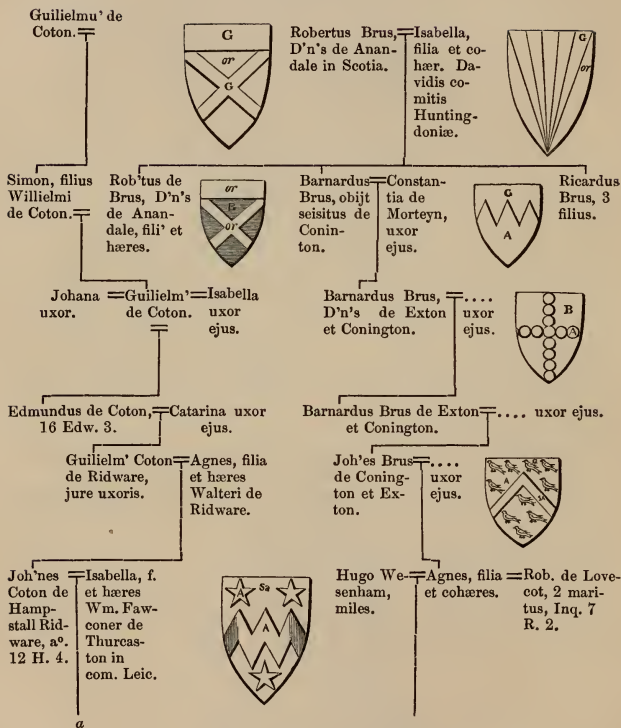 Guilielmu' de
Coton.
G
or
G
Robertus Brus,
D'n's de Anan-
dale in Scotia.
Isabella,
filia et co-
hær. Da-
vidis co-
mitis
Hunting-
doniæ.
G
or
Simon, filius
Willielmi
de Coton.
Rob'tus de
Brus, D'n's
de Anan-
dale, fili' et
hæres.
or
B
or
Barnardus
Brus, obijt
seisitus de
Conin-
ton.
Constan-
tia de
Morteyn,
uxor
ejus.
G
A
Ricardus
Brus, 3
filius.
Johana
uxor.
Guilielm'
de Coton.
Isabella
uxor
ejus.
Barnardus Brus,
D'n's de Exton
et Conington.
....
uxor
ejus.
B
A
Edmundus de Coton,
16 Edw. 3.
Catarina uxor
ejus.
Barnardus Brus de Exton
et Conington.
.... uxor ejus.
Guilielm' Coton
de Ridware,
jure uxoris.
Agnes, filia
et hæres
Walteri de
Ridware.
Joh'es Brus
de Coning-
ton et Ex-
ton.
....
uxor
ejus.
A
Joh'nes
Coton de
Hamp-
stall Rid-
ware, aº.
12 H. 4.
Isabella, f.
et hæres
Wm. Faw-
coner de
Thurcas-
ton in
com. Leic.
Sa
A
A
Hugo We-
senham,
miles.
Agnes, filia
et cohæres.
Rob. de Love-
cot, 2 mari-
tus, Inq. 7
R. 2.
a